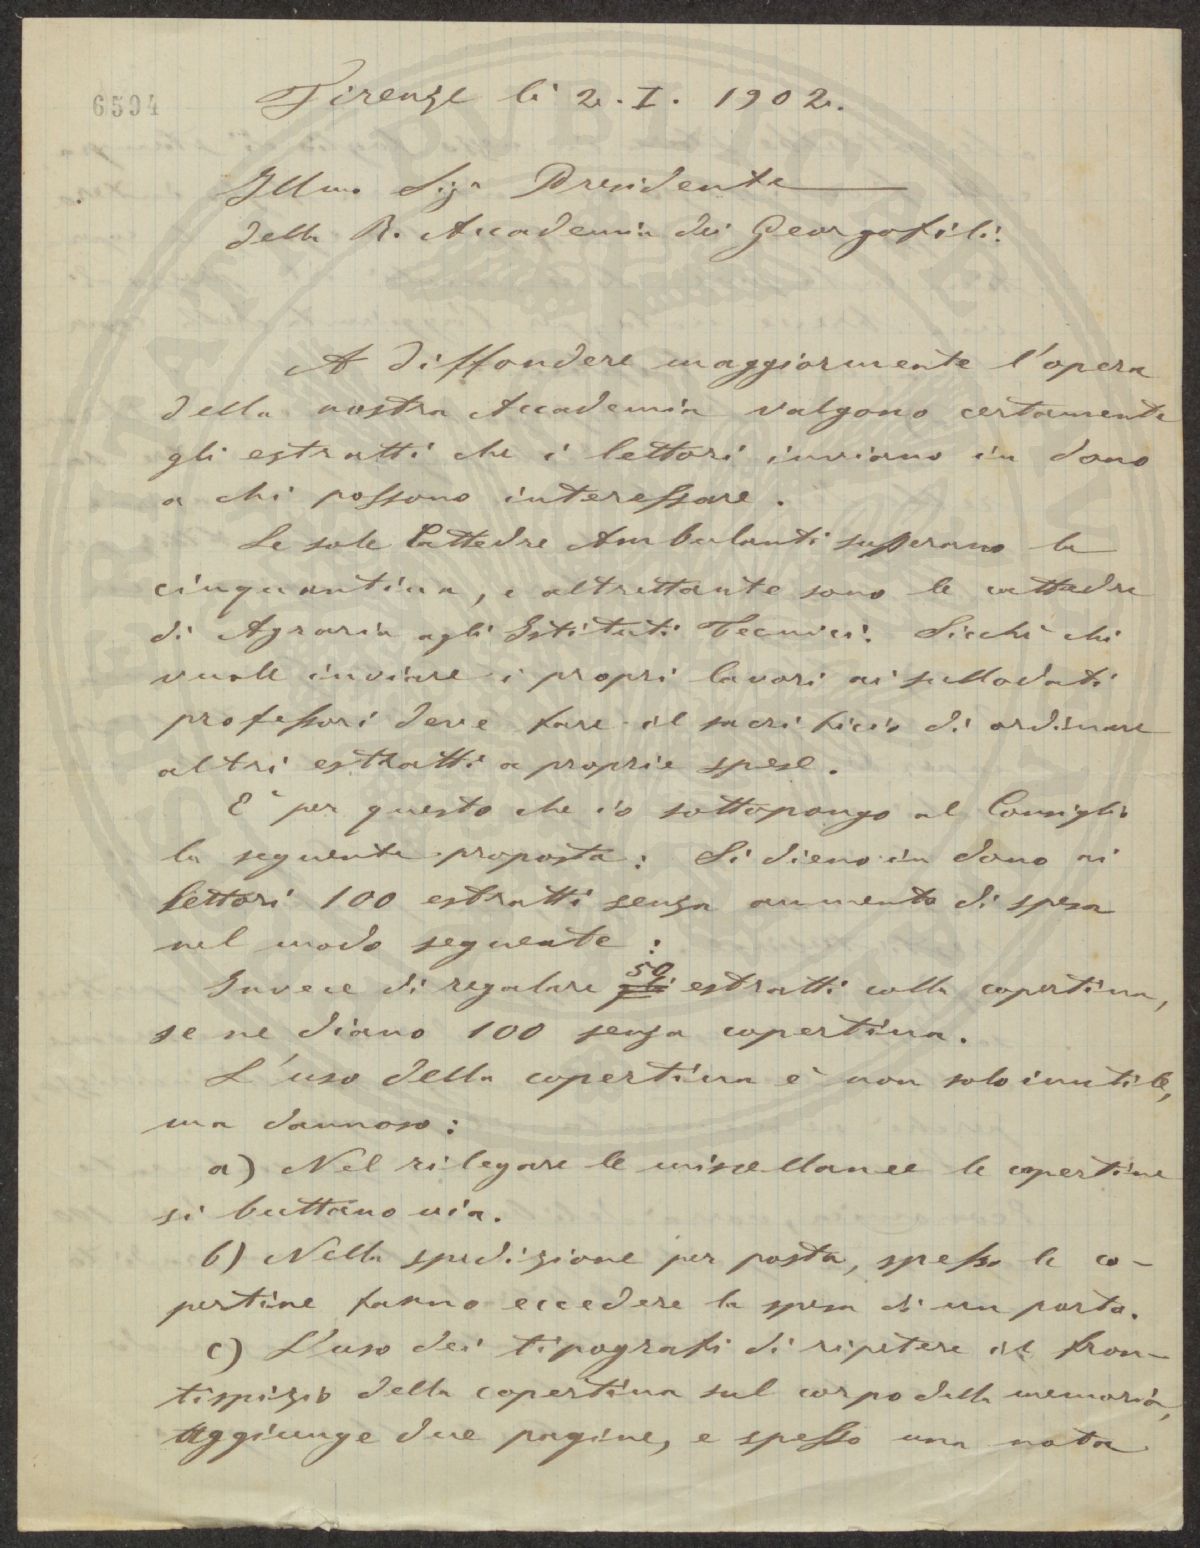 6594
Firenze li 2. I. 1902.
Illmo Sigr Presidente
della R. Accademia dei Georgofili.
A diffondere maggiormente l'opera
della nostra Accademia valgono certamente
gli estratti che i lettori inviano in dono
a chi possono interessare.
Le sole Cattedre Ambulanti superano la
cinquantina, e altrettante sono le cattedre
di Agraria agli Istituti Tecnici. Sicchè chi
vuole inviare i propri lavori ai sullodati
professori deve fare il sacrificio di ordinare
altri estratti a proprie spese.
E' per questo che io sottopongo al Consiglio
la seguente proposta: Si dieno in dono ai
lettori 100 estratti senza aumento di spesa
nel modo seguente:
Invece di regalare 50 estratti colla copertina,
se ne diano 100 senza copertina.
L'uso della copertina è non solo inutile,
ma dannoso:
a) Nel rilegare le miscellanee le copertine
si buttano via.
b) Nella spedizione per posta, spesso le co-
pertine fanno eccedere la spesa di un porto.
c) L'uso dei tipografi di ripetere il fron-
tispizio della copertina sul corpo della memoria,
aggiunge due pagine, e spesso una nota